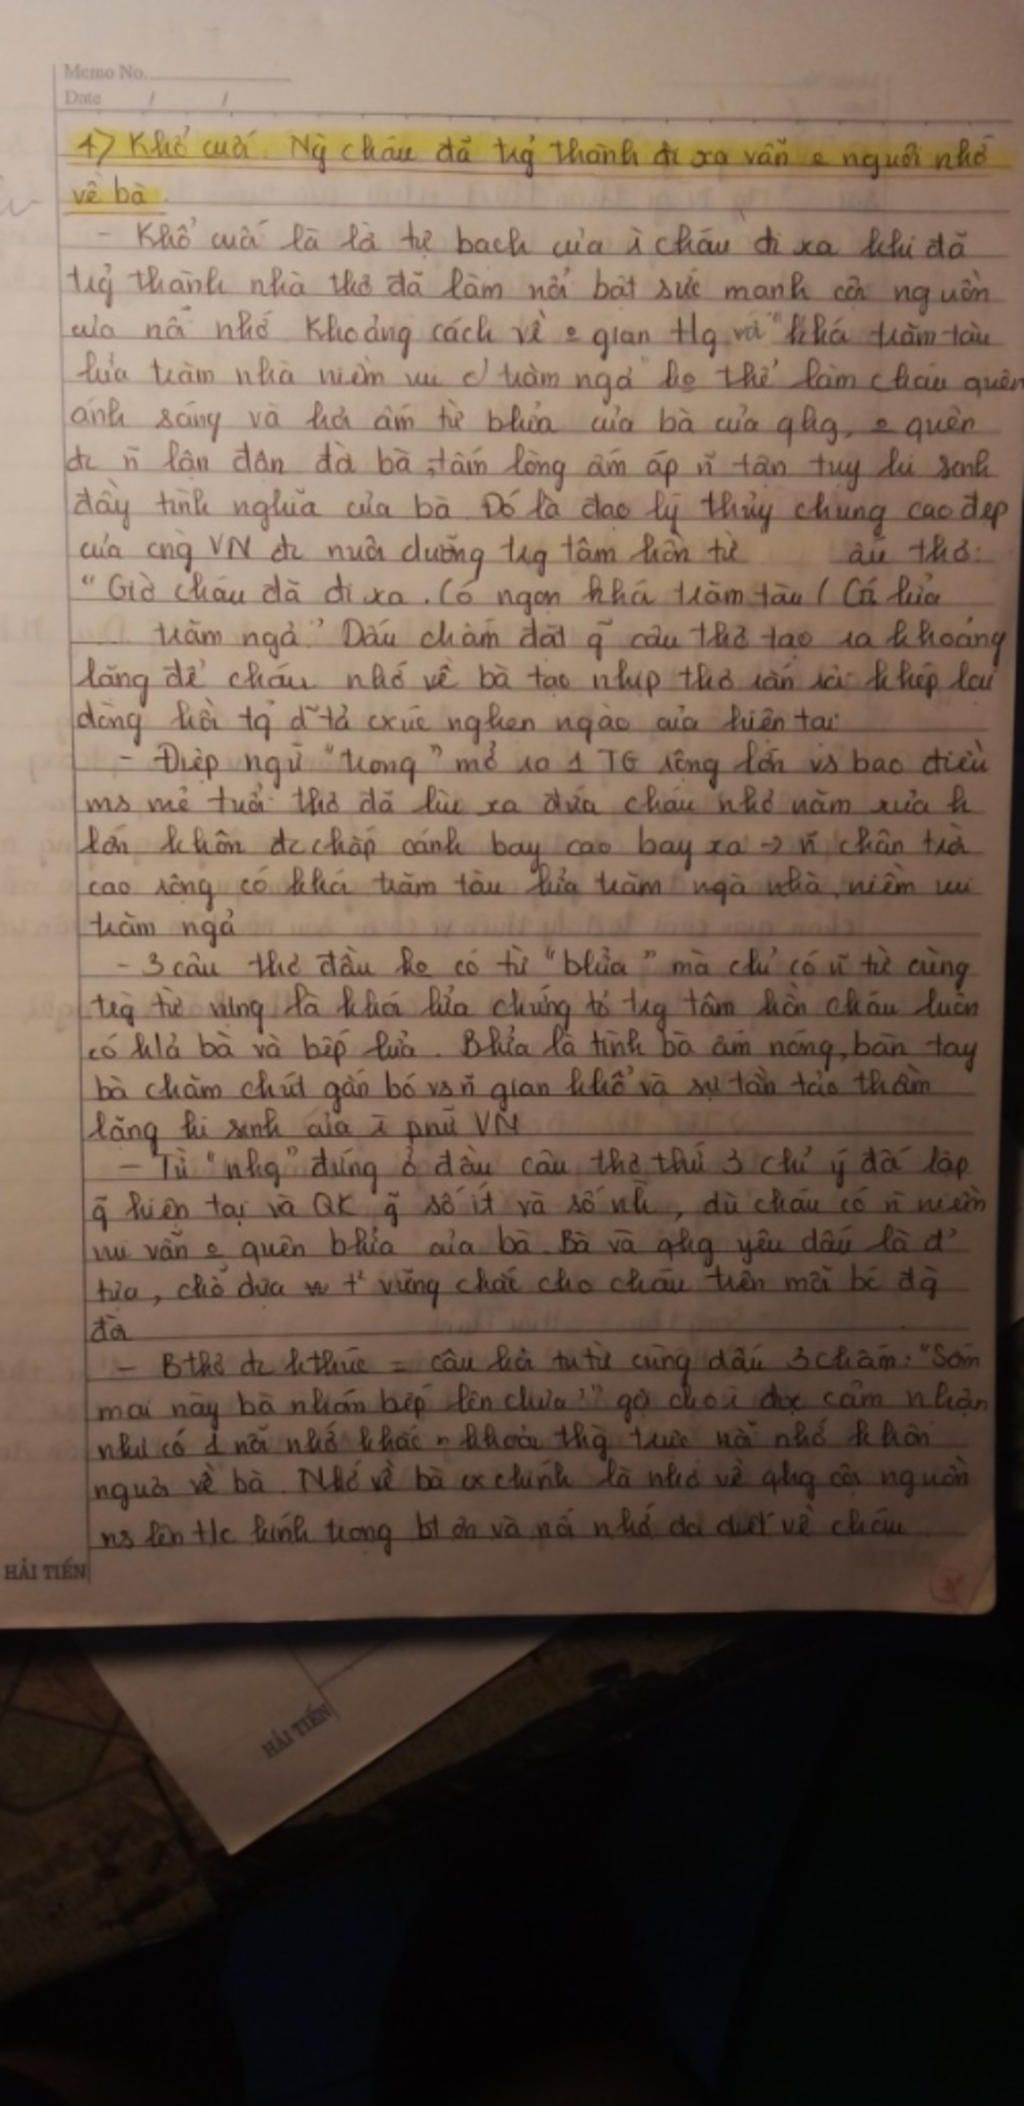 Memo No.
Date / /
4) Khổ cuối. Ng cháu đã trg thành đi xa vẫn o nguôi nhớ
về bà.
- Khổ cuối là là tự bạch của i cháu đi xa khi đã
trg thành nhà thơ đã làm nổi bật sức mạnh cội nguồn
của nỗi nhớ Khoảng cách về o gian tlg và "khá trăm tàu
lửa trăm nhà niềm vui trăm ngả" ko thể làm cháu quên
ánh sáng và hơi ấm từ blửa của bà của qhg, o quên
đc n lận đận đời bà, tấm lòng ấm áp n tận tụy hi sinh
đầy tình nghĩa của bà. Đó là đạo lý thủy chung cao đẹp
của cng VN đc nuôi dưỡng trg tâm hồn từ ấu thơ:
"Giờ cháu đã đi xa. Có ngọn khá trăm tàu / Có lửa
trăm ngả" Dấu chấm đặt g câu thơ tạo ra khoảng
lặng để cháu nhớ về bà tạo nhịp thơ rắn rỏi khép lại
dòng hồi tg d~ tả cxúc nghẹn ngào của hiện tại
- Điệp ngữ "trong" mở ra 1 TG rộng lớn vs bao điều
ms mẻ tuổi thơ đã lùi xa đứa cháu nhỏ năm xưa k
lớn khôn đc chắp cánh bay cao bay xa -> n chân trời
cao rộng có khá trăm tàu lửa trăm ngả nhà, niềm vui
trăm ngả
- 3 câu thơ đầu ko có từ "blửa" mà chỉ có n từ cùng
trg từ vựng là khá lửa chứng tỏ trg tâm hồn cháu luôn
có h/ả bà và bếp lửa. Blửa là tình bà ấm nóng, bàn tay
bà chăm chút gắn bó vs n gian khổ và sự tần tảo thầm
lặng hi sinh của i pnữ VN
- Từ "nhg" đứng ở đầu câu thơ thứ 3 chỉ ý đối lập
g hiện tại và QK g số ít và số nh, dù cháu có n niềm
vui vẫn o quên blửa của bà. Bà và qhg yêu dấu là đ'
tựa, chỗ dựa t² vững chắc cho cháu trên mỗi bc đg
đời
- Bthơ đc kthúc = câu hỏi tu từ cùng dấu 3 chấm: "Sớm
mai này bà nhóm bếp lên chưa?" gợi cho i đọc cảm nhận
như có 1 nỗi nhớ khắc khoải thg trực nỗi nhớ khôn
nguôi về bà. Nhớ về bà cx chính là nhớ về qhg cội nguồn
ns lên t/c kính trọng bt ơn và nỗi nhớ da diết về cháu
HẢI TIẾN
HẢI TIẾN